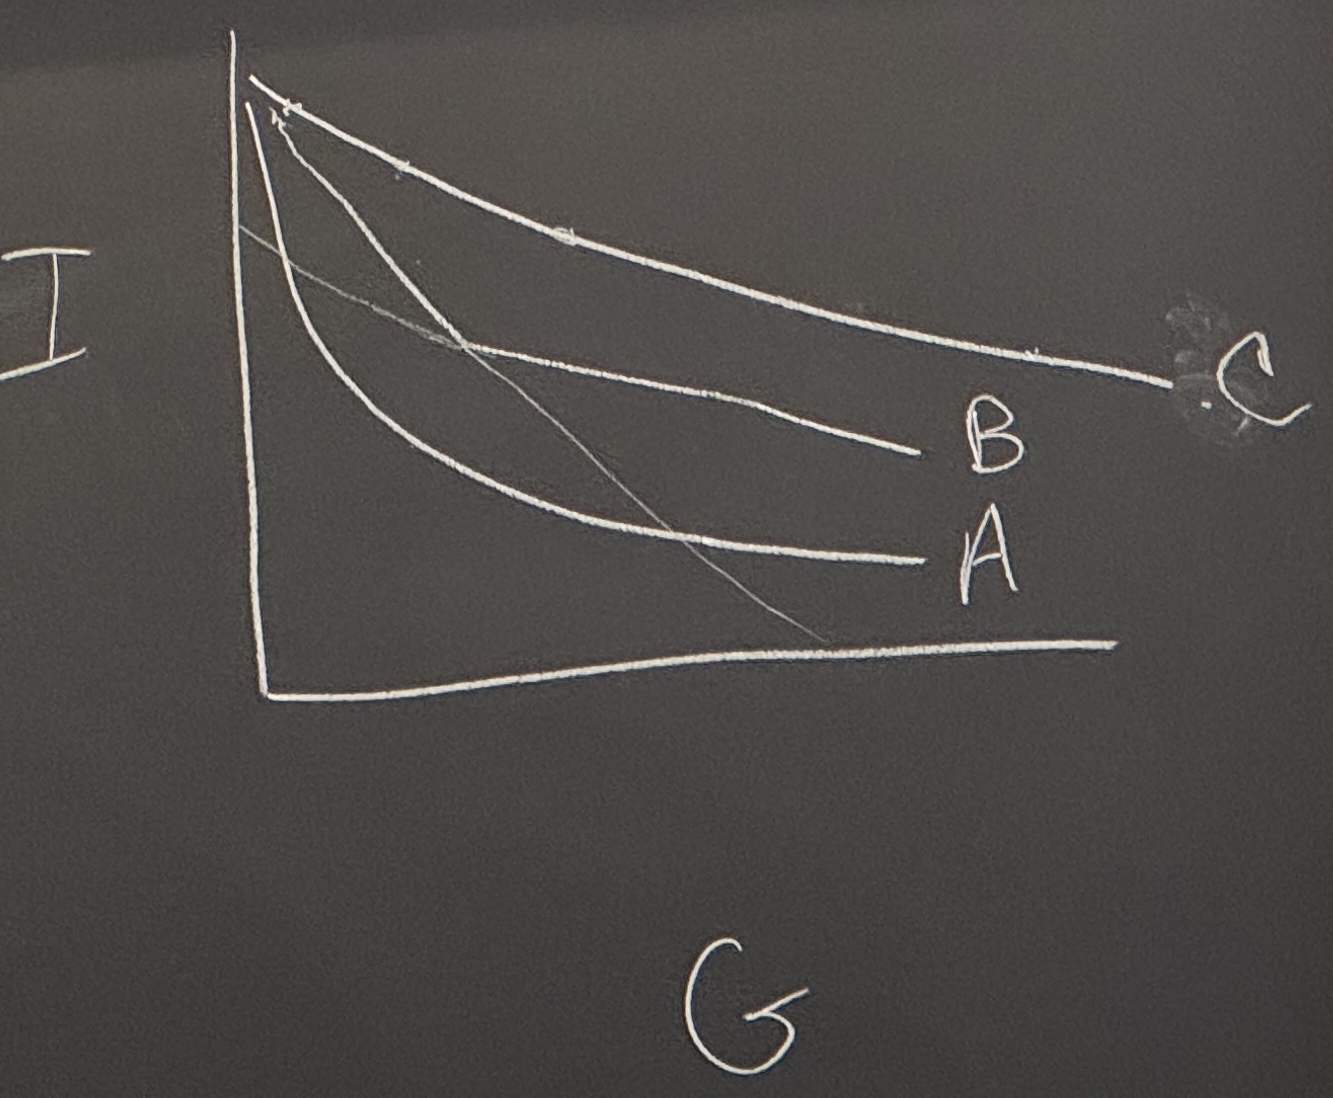 I
C
B
A
G